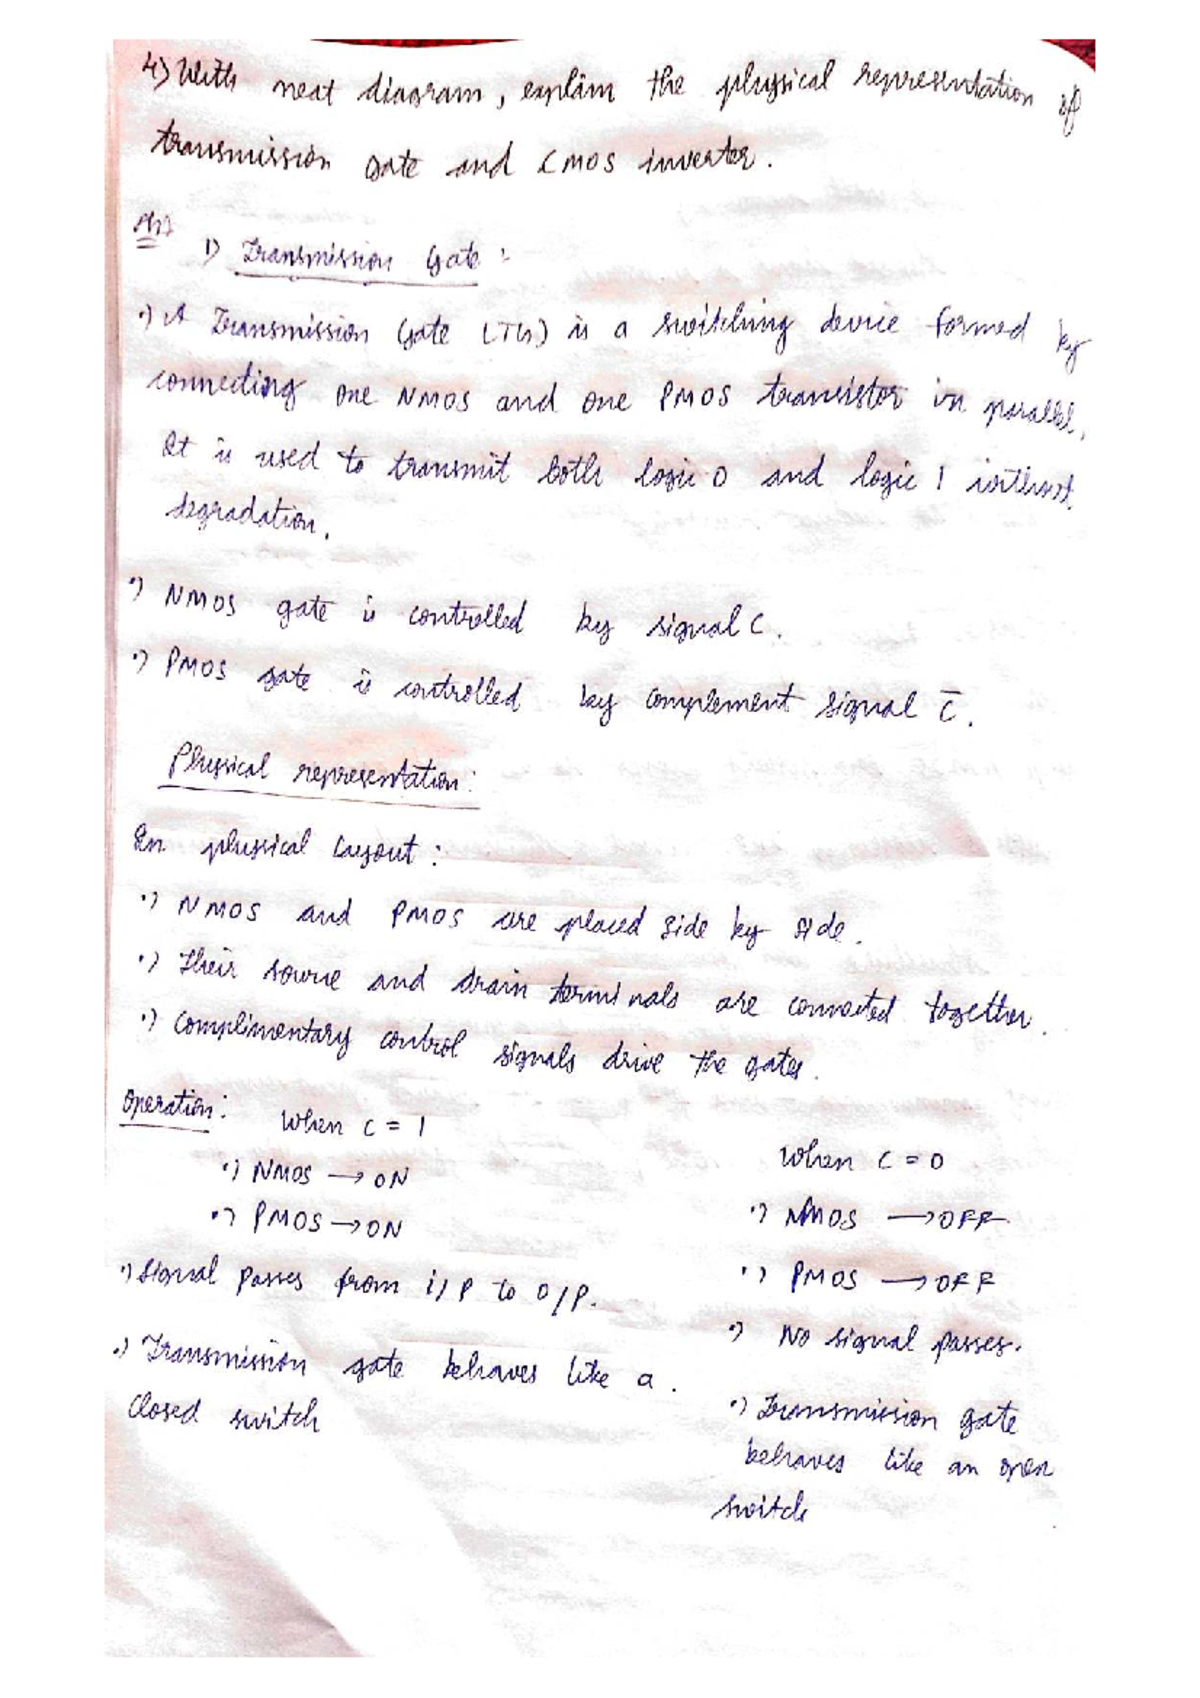 4) With neat diagram, explain the physical representation of
transmission gate and CMOS inverter.
Ans
1) Transmission Gate :
•) A Transmission Gate (TG) is a switching device formed by
connecting one NMOS and one PMOS transistor in parallel.
It is used to transmit both logic 0 and logic 1 without
degradation.
•) NMOS gate is controlled by signal C.
•) PMOS gate is controlled by complement signal C̅.
Physical representation:
In physical Layout :
•) NMOS and PMOS are placed side by side.
•) Their source and drain terminals are connected together.
•) Complimentary control signals drive the gates.
Operation:
When C = 1
•) NMOS → ON
•) PMOS → ON
•) Signal passes from i/p to O/P.
•) Transmission gate behaves like a.
Closed switch
When C = 0
•) NMOS → OFF
•) PMOS → OFF
•) No signal passes.
•) Transmission gate
behaves like an open
switch